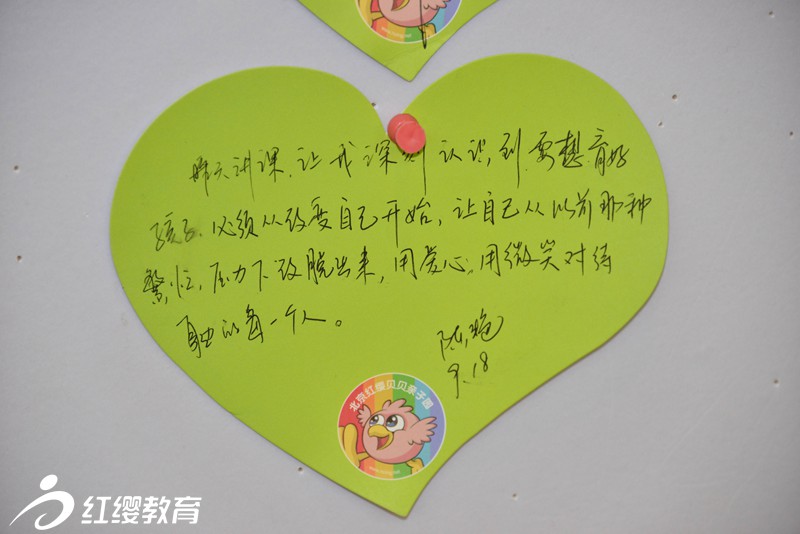 昨天讲课,让我深刻认识到要想育好
孩子,必须从改变自己开始,让自己从以前那种
繁忙,压力下改脱出来,用爱心、用微笑对待
身边的每一个人。
陈艳
9.18
北京红缨贝贝亲子园
红缨教育